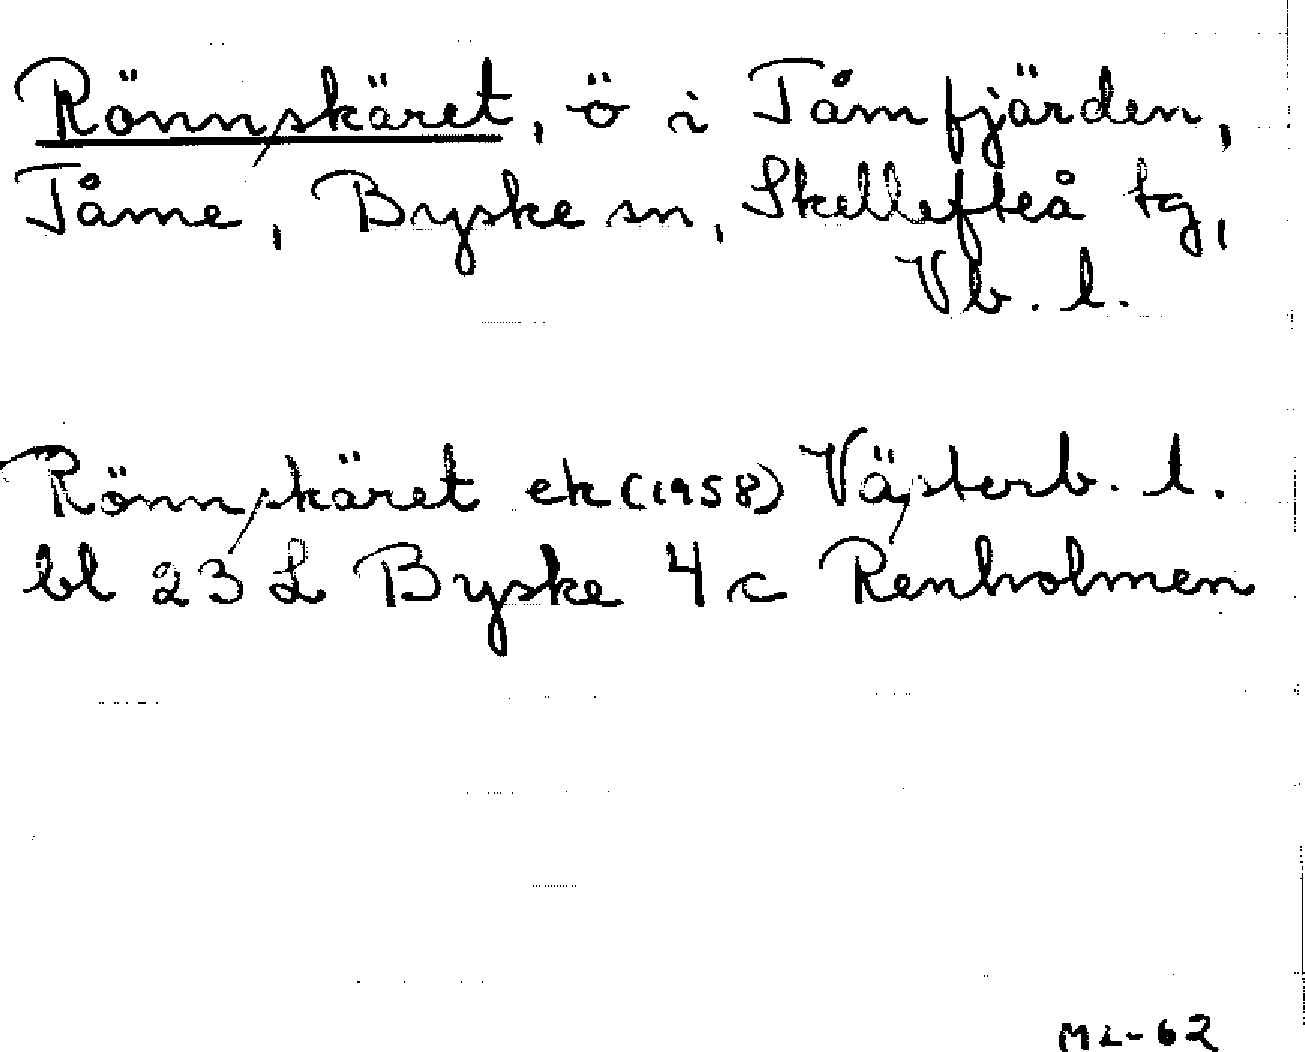 Rönnskäret, ö i Tåmfjärden,
Tåme, Byske sn, Skellefteå tg,
Vb. l.
Rönnskäret ek (1958) Västerb. l.
bl 23 L Byske 4 c Renholmen
ML-62